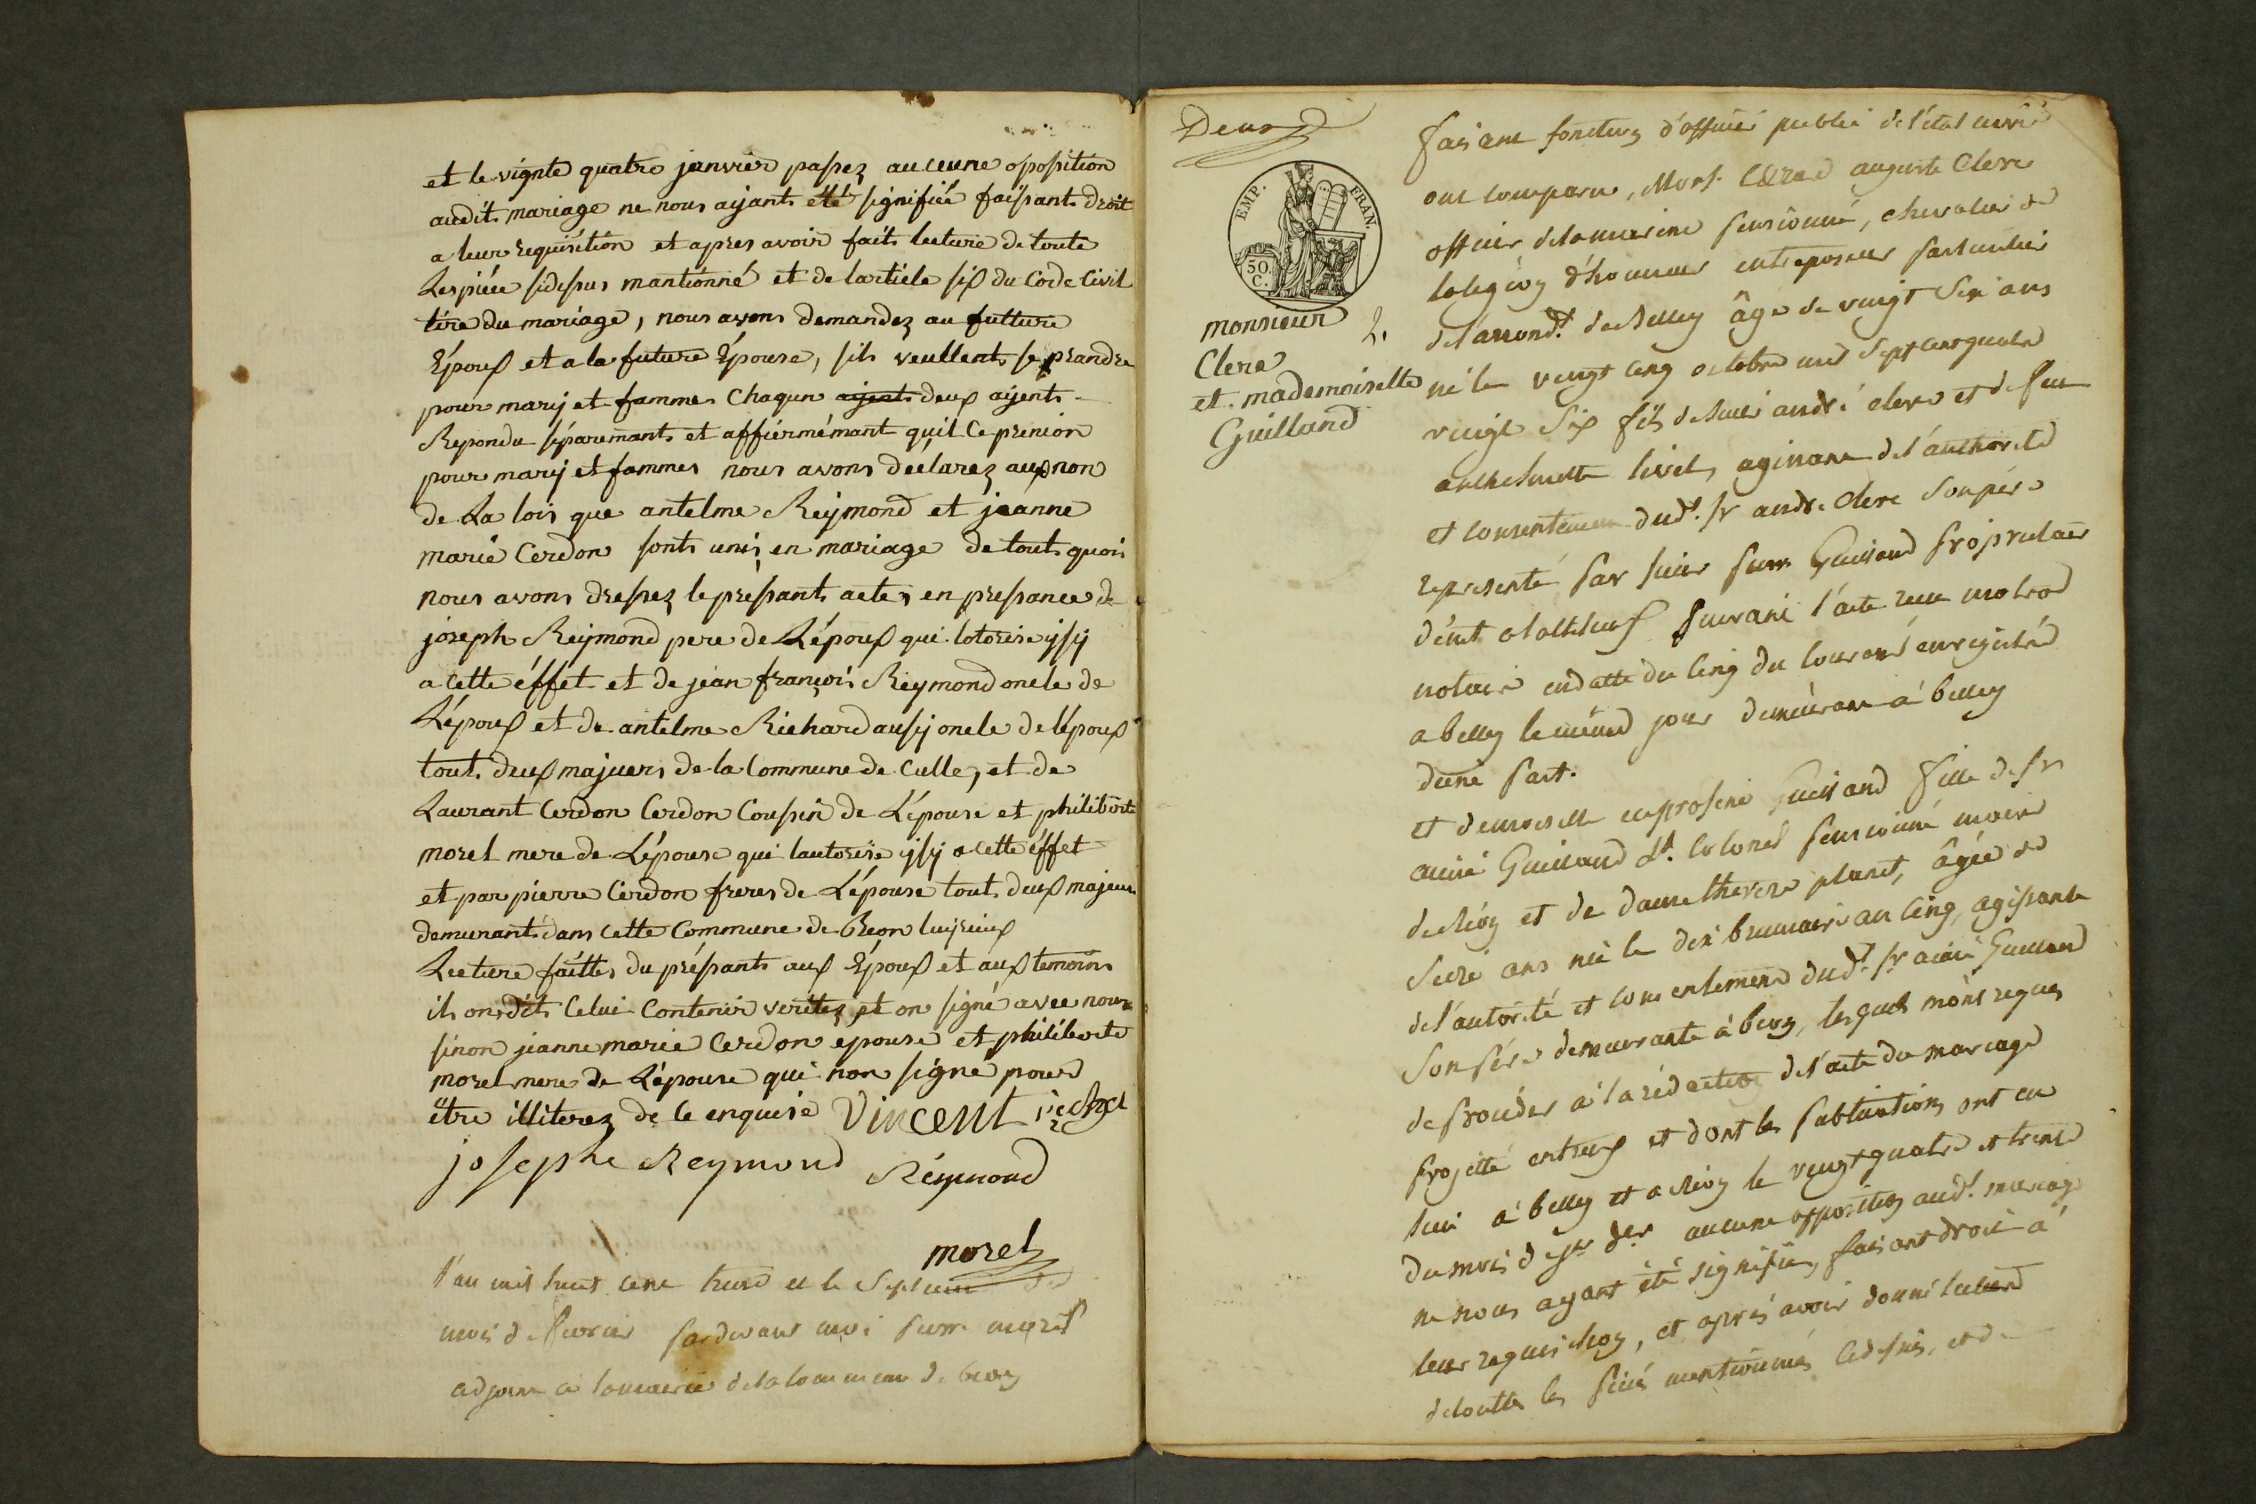 et le vignte quatre janvier passez auceune oposition
audit mariage ne nous aijant été signifiée faissant droit
a leur requisition et apres avoir fait lecture de toute
Les piéce sidesus mantionné et de lartiele six du Code Civil
tire du mariage, nous avons demandez au future
Epoux et a la future Épouse, sils veullent se prandre
pour marij et fammes Chaqun aijent deux aijent
Repondu séparemant et affiérmémant quil Ce prenion
pour marij et fammes nous avons declarez aux non
de La lois que antelme Reijmond et jeanne
marie Cerdon sont unis en mariage de tout quoi
nous avons dressez le pressant acte, en pressance de
joseph Reijmond pere de L'époux qui lotorise ijsij
a cette éffet et de jean françois Reymond oncle de
L'époux et de antelme Richard ausij oncle de lépoux
tout deux majeurs de la Commune de Culle, et de
Laurant Cerdon Cerdon Coussin de L'épouse et philiberte
morel mere de L'épouse qui lautorise ijsij a cette éffet
et par pierre Cerdon freres de L'épouse tout deux majeurs
demurant dans cette Commune de Breon luijrieux
Lecture faitte du préssant aux Époux et aux temoins
ils on dit Celui Contenir veritez et on signé avec nous
sinon jeanne marie Cerdon epouse et philiberte
morel mere de L'épouse qui non signé pour
être illiterez de ce enquise Vincent
josephe Reymond Réymond
morel
l'an mil huit cent treize et le Sept du
mois de fevrier pardevant moi pierre morel
adjoint a la mairie de la commune de
Deux
EMP. FRAN.
50 C.
monsieur 2.
Clerc
et mademoiselle
Guilland
faisant fonctions d'officier public de l'état civil
ont comparu, Mons. auguste Clerc
officier de la marine pensionné, chevalier de
la legion d'honneur entreposeur particulier
de l'arrond.t de Belley âgé de vingt Six ans
né le vingt cinq octobre mil Sept cent quatre
vingt Six fils de Sieur andré clerc et de feu
livet, agissant de l'authorité
et consentement dud.t Sr andré Clerc Son père
représenté par Sieur pierre Guilland propriétaire
suivant l'acte reçu
notaire en datte du cinq du courant enregistré
a belley le même jour demeurant à belley
d'une part.
et demoiselle euprosine Guilland fille de Sr
aimé Guilland Lt. Colonel pensionné maire
de et de dame therese planet, âgée de
Seize ans née le dix brumaire an cinq, agissante
de l'autorité et consentement dud.t Sr aimé Guilland
Son père demeurante à, lesquels m'ont requis
de procéder à la rédaction de l'acte du mariage
projetté entreux et dont les publications ont eu
lieu à belley et a le vingt quatre et trente
du mois der aucune opposition aud.t mariage
ne nous ayant été signifiée, faisant droit à
leur requisition, et après avoir donné lecture
de touttes les pièces mentionnées ci dessus, et de